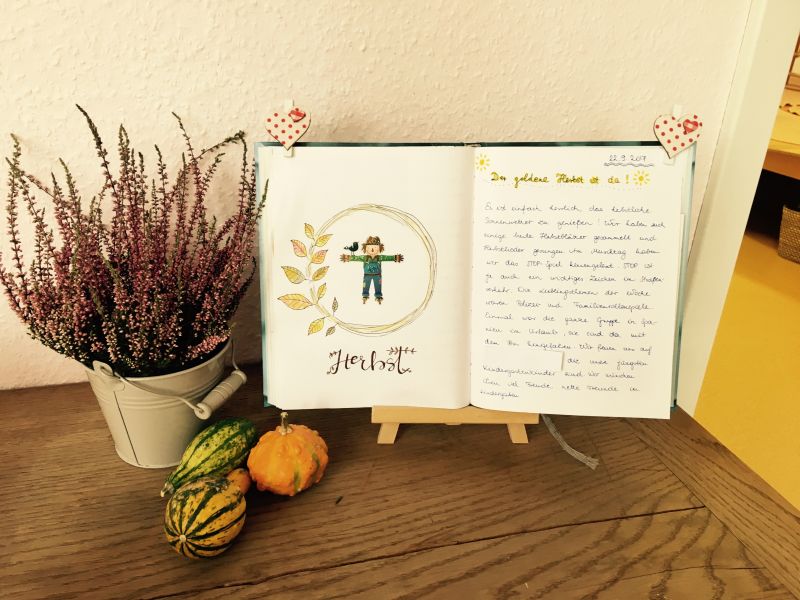 Herbst
22.9.2017
Der goldene Herbst ist da!
Es ist einfach herrlich, das herbstliche
Sonnenwetter zu genießen! Wir haben auch
einige bunte Herbstblätter gesammelt und
Herbstlieder gesungen. Im Musiktag haben
wir das STOP-Spiel kennengelernt. STOP ist
ja auch ein wichtiges Zeichen im Straßen-
verkehr. Die Lieblingsthemen der Woche
waren Polizei und Familienrollenspiele.
Einmal war die ganze Gruppe in Spa-
nien im Urlaub, sie sind da mit
dem Bus hingefahren. Wir freuen uns auf
die zwei jüngsten
Kindergartenkinder sind. Wir wünschen
ihnen viel Freude, nette Freunde im
Kindergarten.